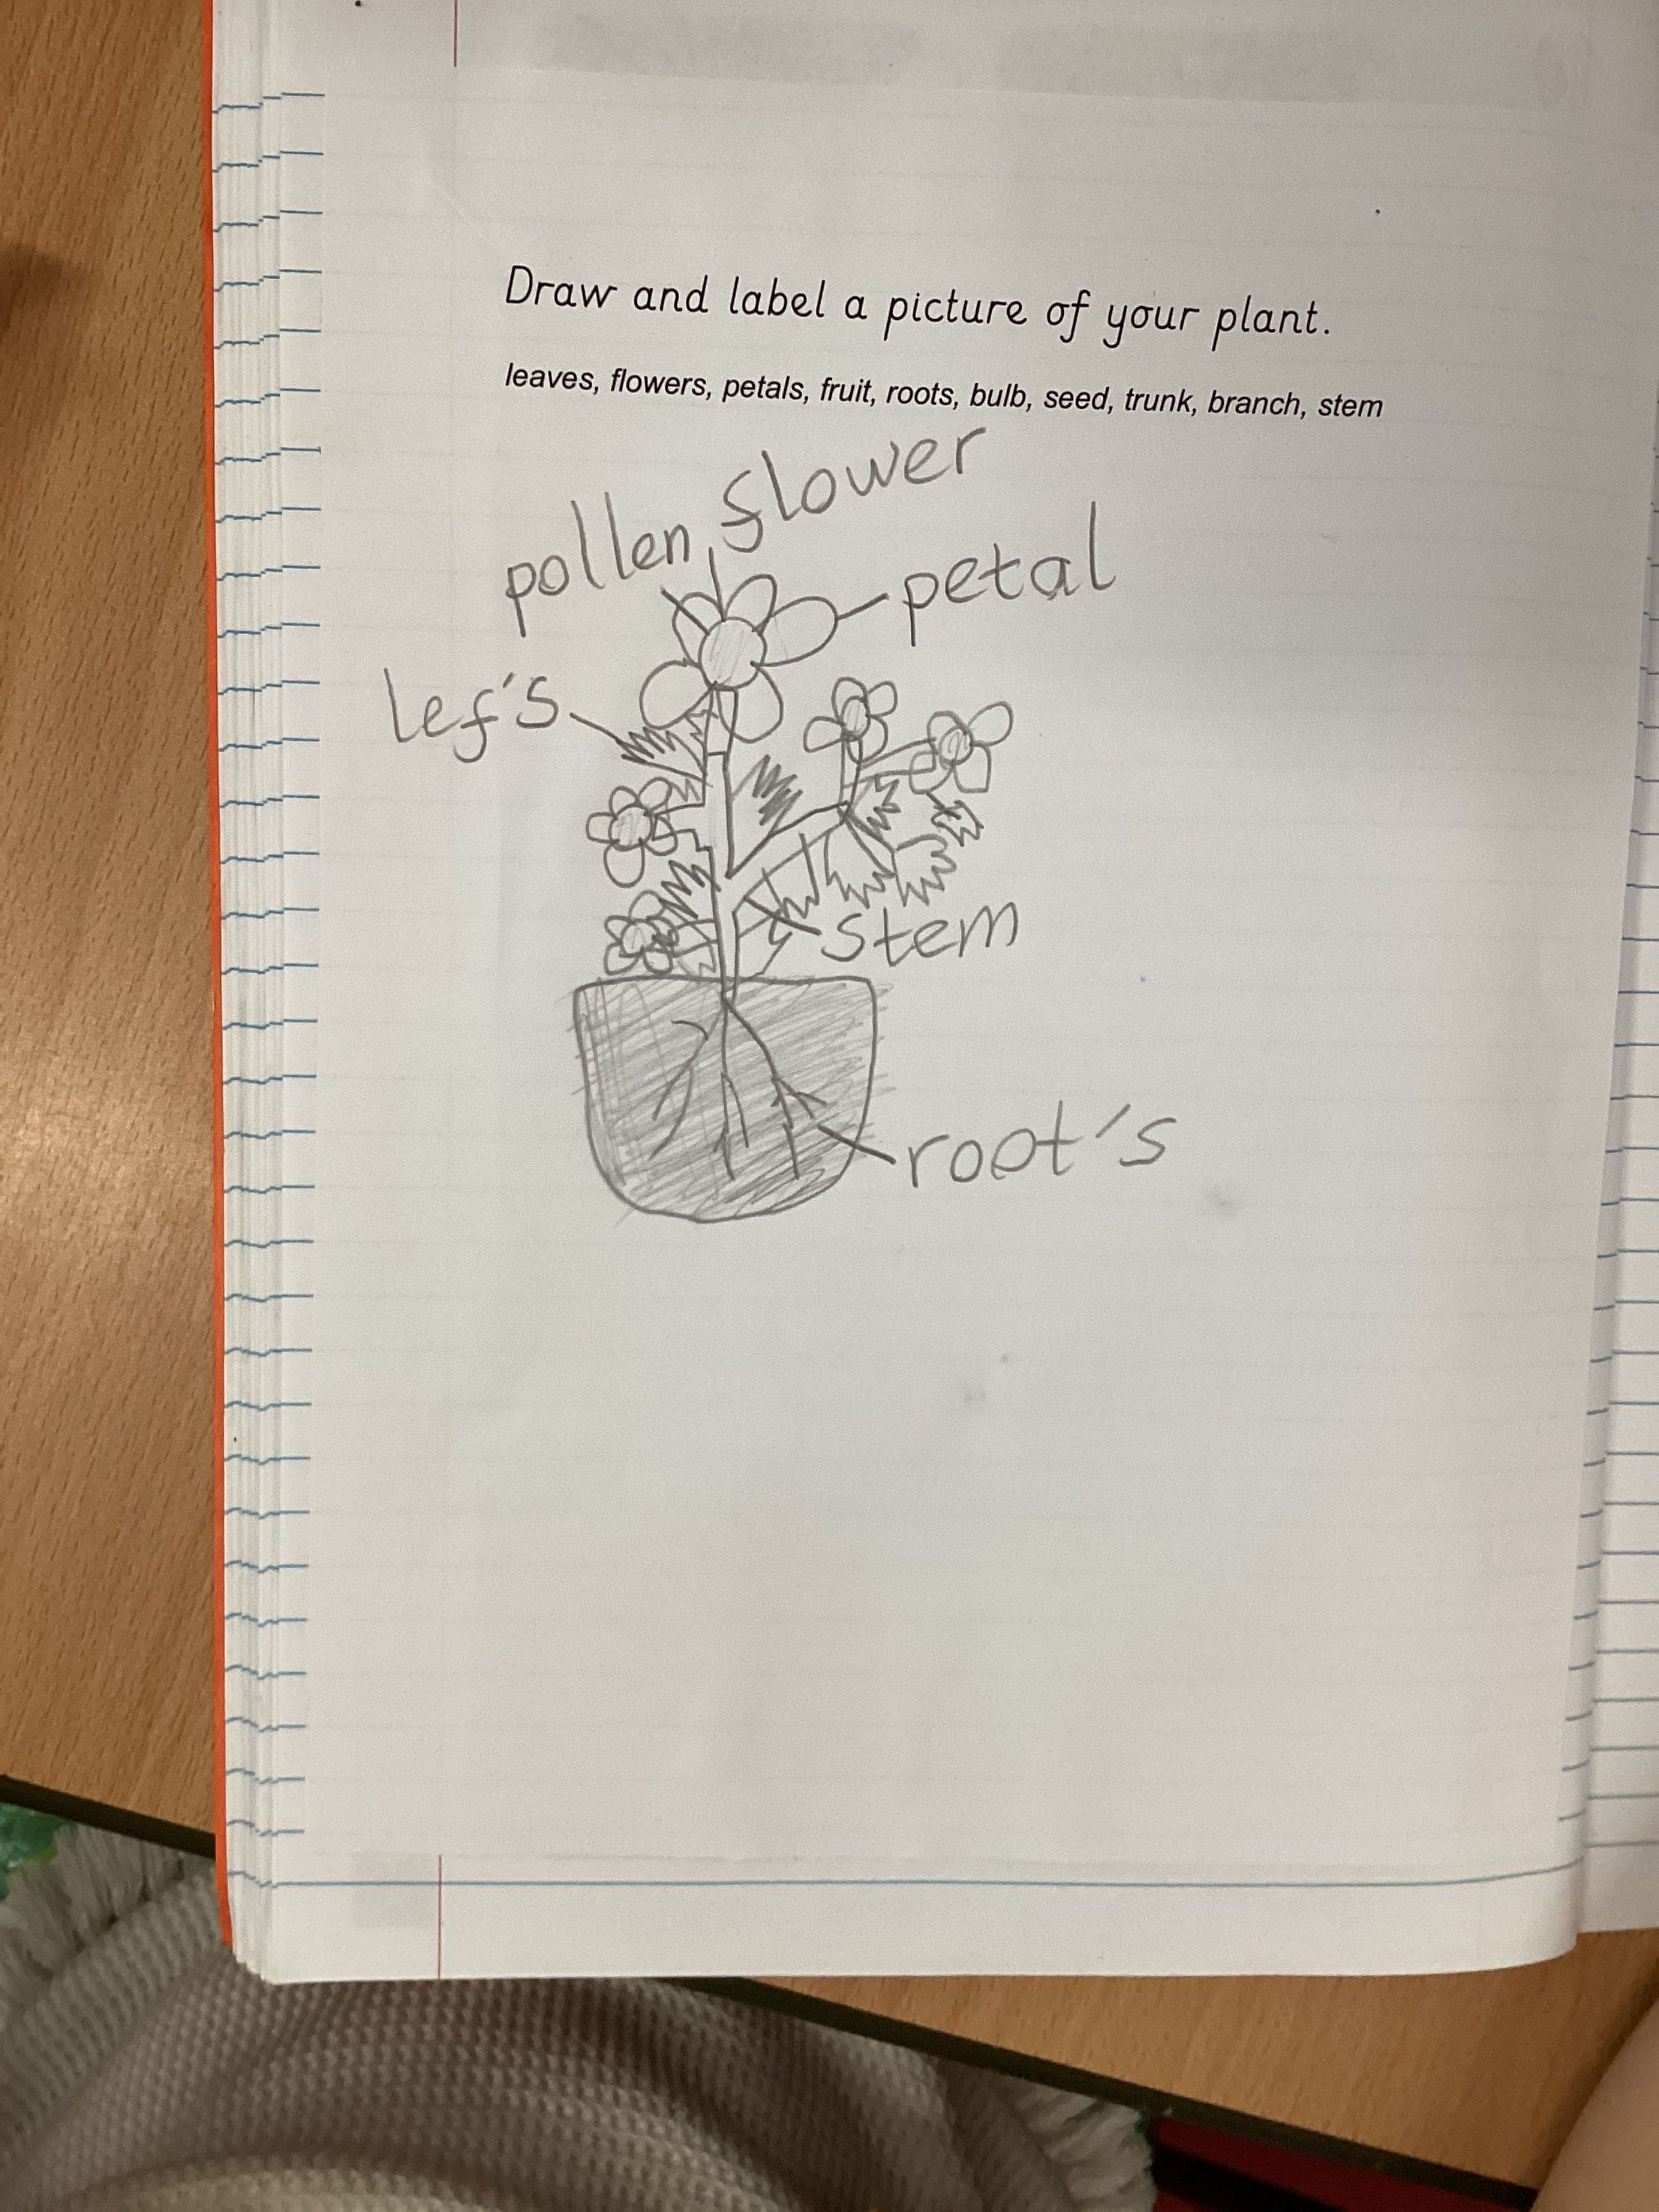 Draw and label a picture of your plant.
leaves, flowers, petals, fruit, roots, bulb, seed, trunk, branch, stem
flower
pollen
petal
lef's
stem
root's